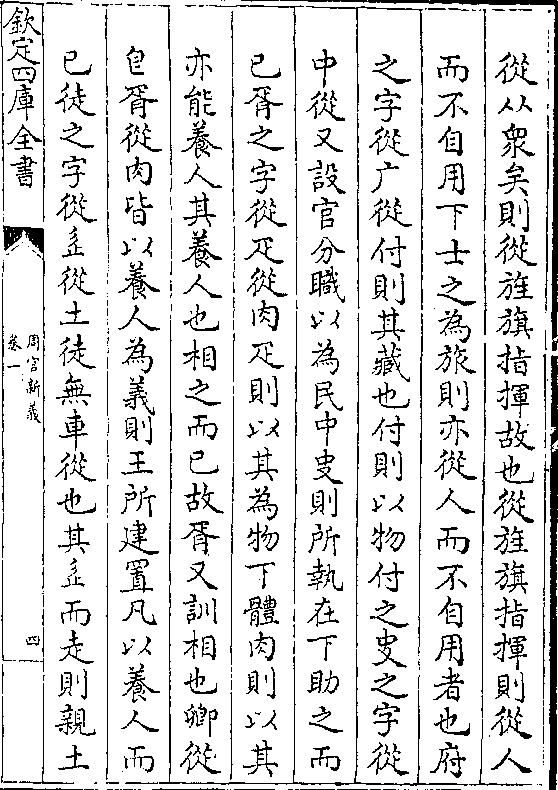 從从衆矣則從旌旗指揮故也從旌旗指揮則從人
而不自用下士之為旅則亦從人而不自用者也府
之字從广從付則其藏也付則以物付之史之字從
中從又設官分職以為民中史則所執在下助之而
已胥之字從疋從肉疋則以其為物下體肉則以其
亦能養人其養人也相之而已故胥又訓相也卿從
皀胥從肉皆以養人為義則王所建置凡以養人而
已徒之字從辵從土徒無車從也其辵而走則親土
欽定四庫全書
周官新義
卷一
四